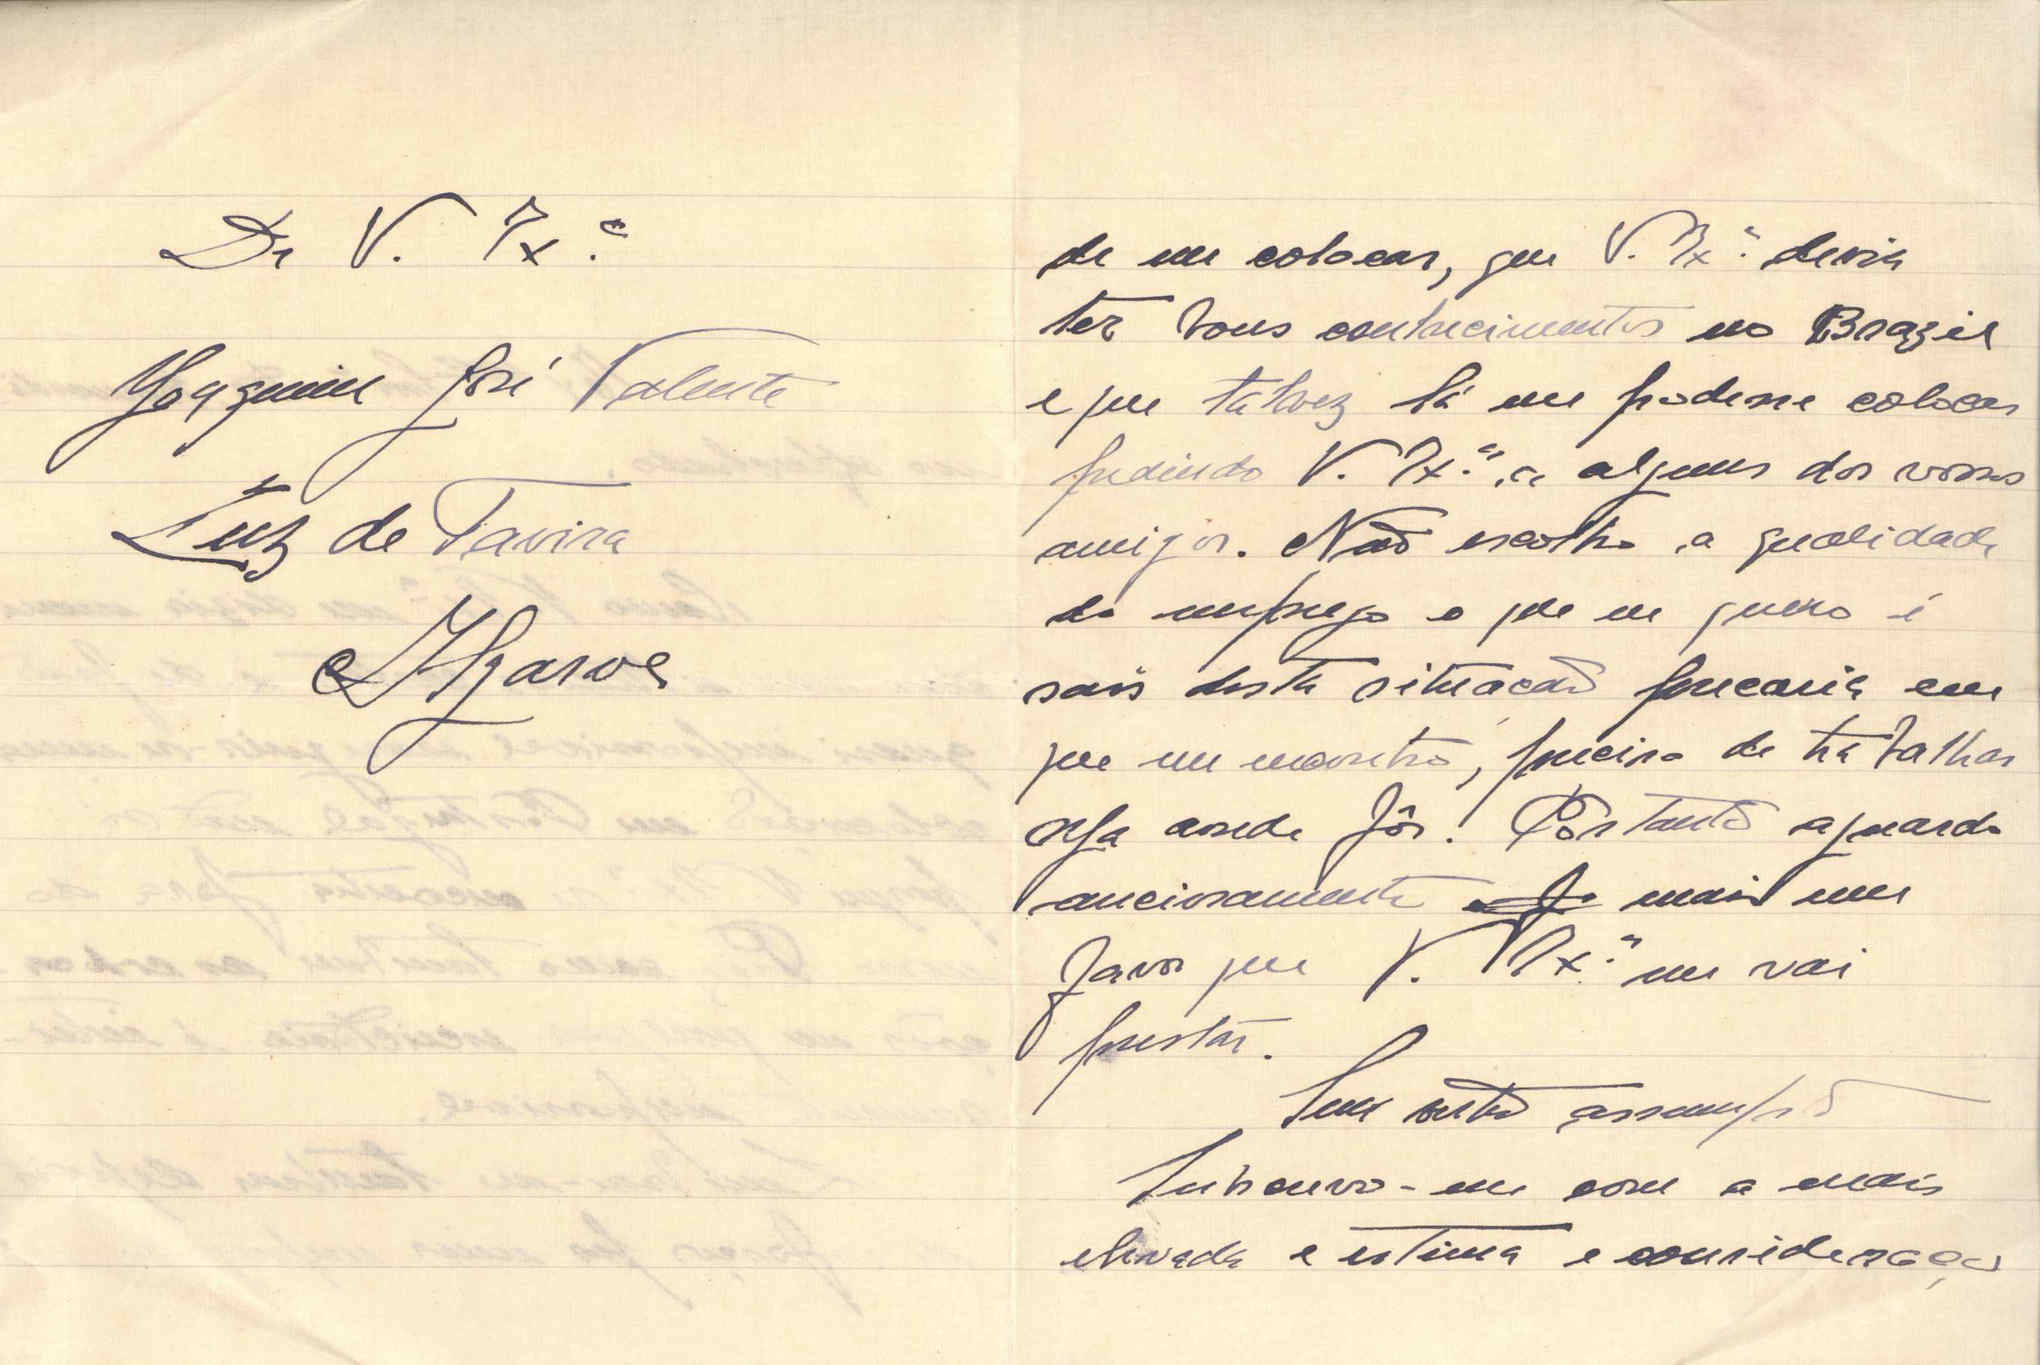 De V. Exª
Joaquim José Valente
Luz de Tavira
Algarve
de me colocar, que V. Exª devia
ter bons conhecimentos no Brazil
e que talvez lá me podesse colocar
pedindo V. Exª a algum dos vossos
amigos. Não escolho a qualidade
do emprego o que eu quero é
sair desta situação precaria em
que me encontro, preciso de trabalhar
seja aonde fôr. Portanto aguardo
anciosamente mais um
favor que V. Exª me vai
prestar.
Sem outro assumpto
Subscrevo-me com a mais
elevada e estima e consideração